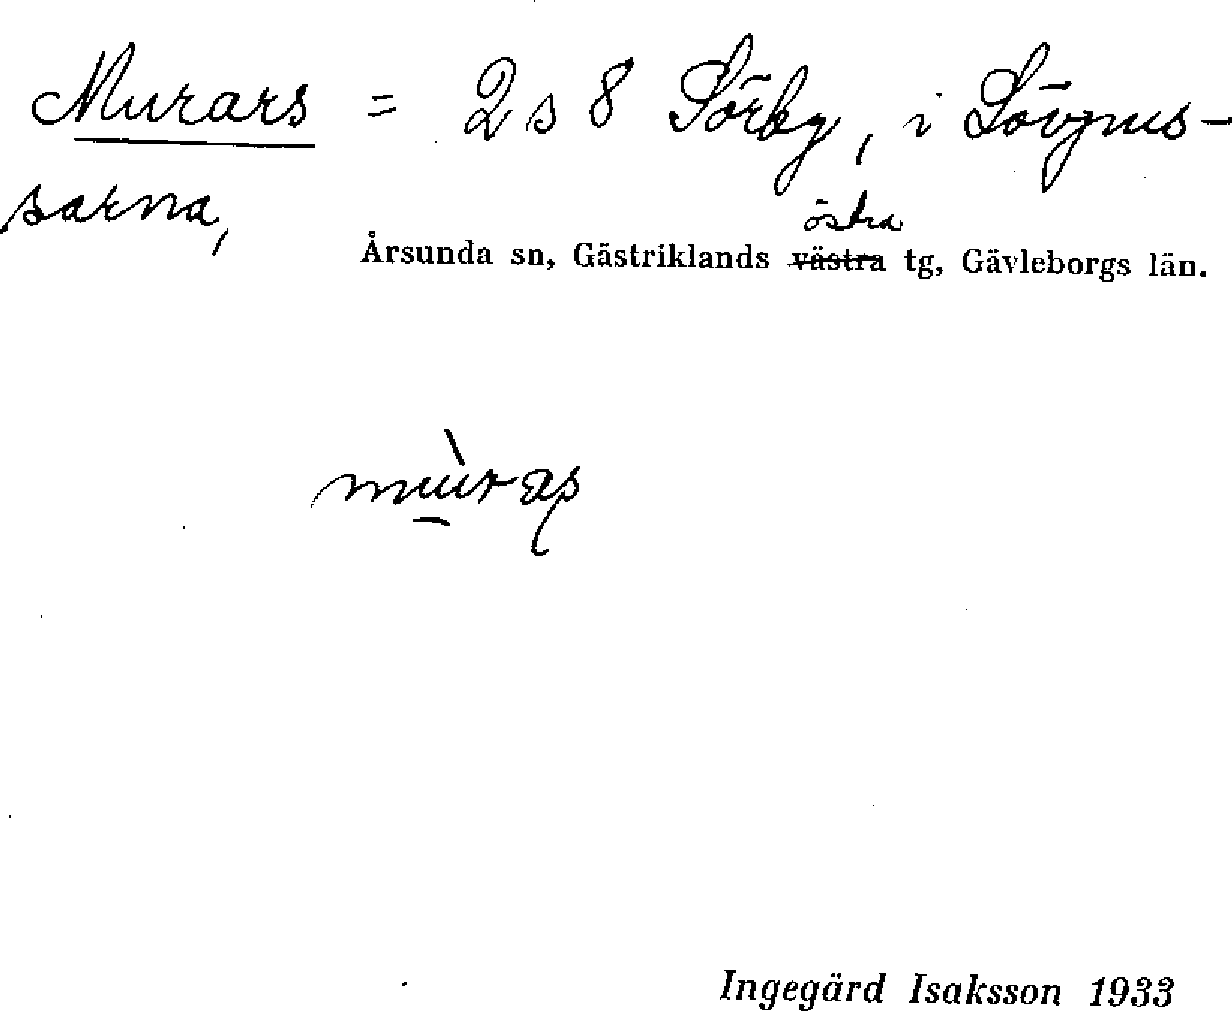 Murars = 2 s 8 Sörby, i Sövgnus-
sarna,
östra
Årsunda sn, Gästriklands västra tg, Gävleborgs län.
Ingegärd Isaksson 1933